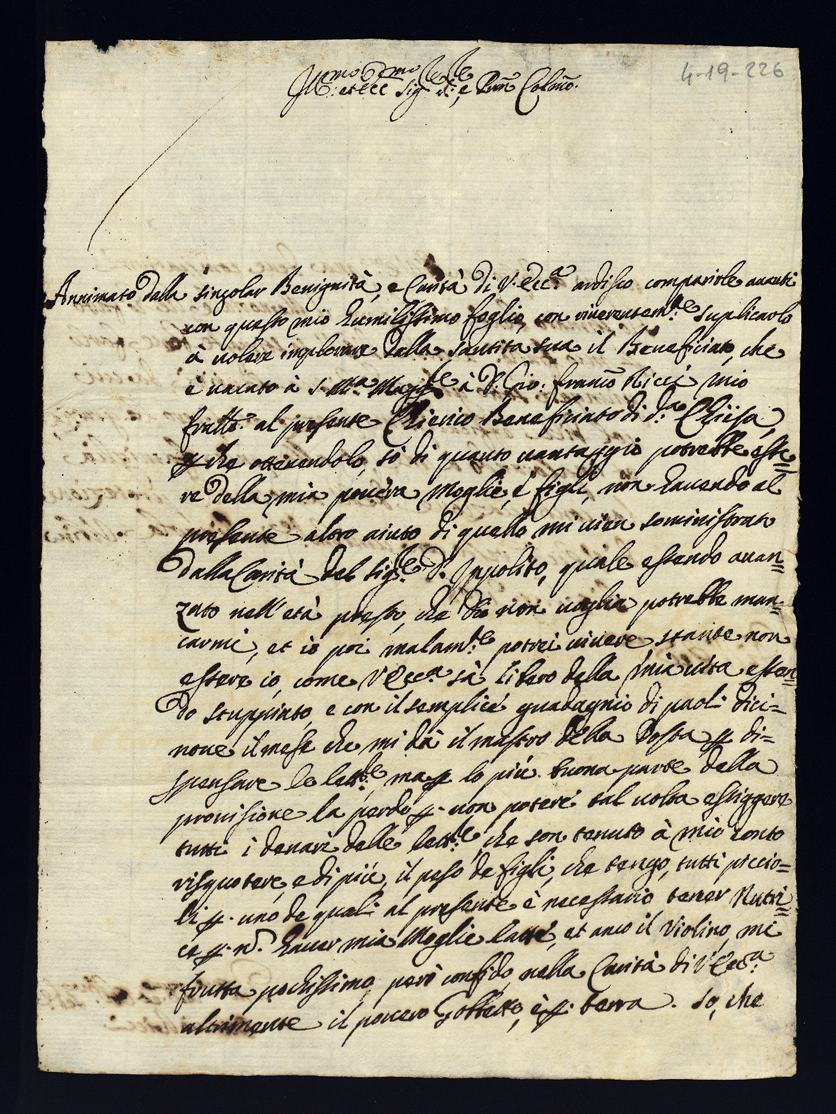 4-19-226
Ill:mo et Ecc:mo Sig:re e Pron Colmo:
Annimato dalla singolar Benignità, e Carità di V. Ecc:a ardisco comparirle avanti
con questo mio humilissimo foglio, con riverentem:te suplicarlo
à volere implorare dalla Santita sua il Beneficiato, che
è vacato à S. Ma: Magg:re à D. Gio: Franco Ricci mio
fratt:o al presente Chierico Beneficiato di d:a Chiesa,
p che ottenendolo, sò di quanto vantaggio potrebbe esse=
re della mia povera Moglie, e figli, non havendo al
presente altro aiuto di quello mi vien sominisstrato
dalla Carità del Sig:re D. Ippolito, quale essendo avan=
zato nell'età presto, che Dio non voglia potrebbe man=
carmi, et io poi malam:te potrei vivere stante non
essere io, come V Ecc:a sà libero della mia vita essen=
do stuppiato, e con il semplice guadagnio di paoli dici=
nove il mese che mi dà il mastro della Posta p di=
spensare le lett:re, ma p lo più buona parte della
provisione la perdo p. non potere tal volta essiggere
tutti i denari delle lett:re, che son tenuto à mio conto
risquotere, e di più, il peso de figli, che tengo, tutti piccio=
li p. uno de quali al presente è necessario tener Nutri=
ce p. n. haver mia Moglie latte, et anco il Violino, mi
frutta pochissimo, però confido nella Carità di V Ecc:a
altrimente il povero Gobbetto, è p. terra. Sò, che